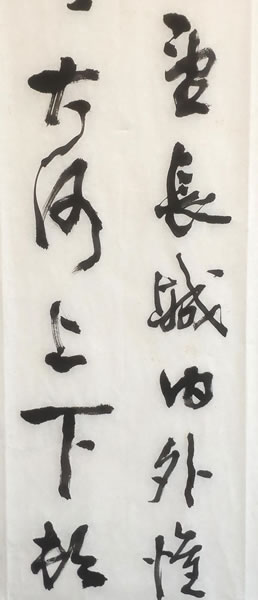 望長城内外惟
大河上下頓